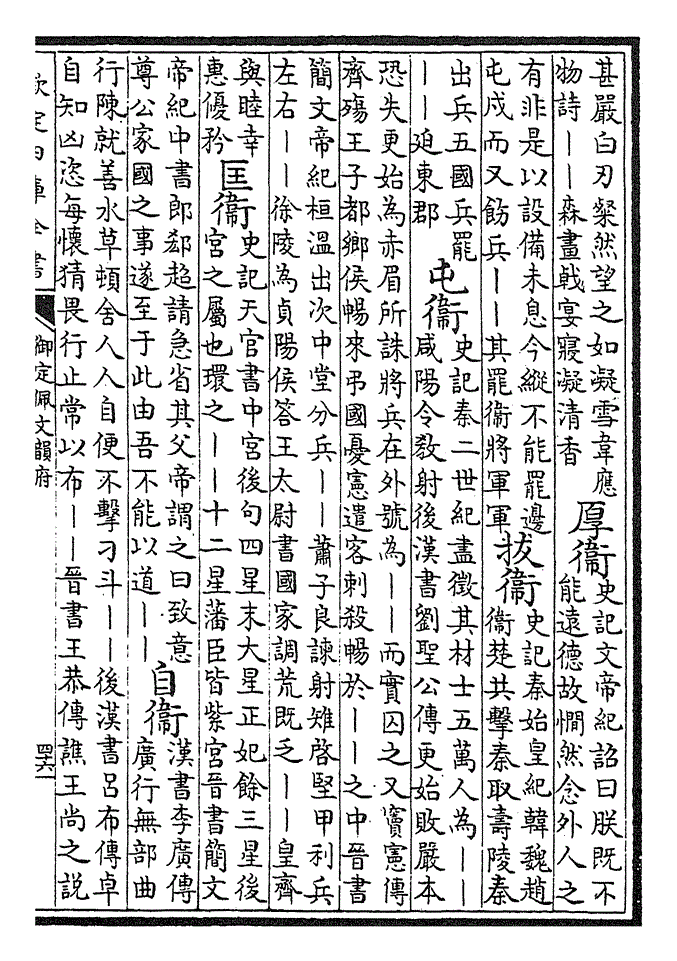 甚嚴白刃粲然望之如凝雪韋應
物詩——森畫戟宴寢凝清香
厚衞
史記文帝紀詔曰朕既不
能遠德故憪然念外人之
有非是以設備未息今縱不能罷邊
屯戍而又飭兵——其罷衞將軍軍
拔衞
史記秦始皇紀韓魏趙
衞楚共擊秦取壽陵秦
出兵五國兵罷
——廹東郡
屯衞
史記秦二世紀盡徵其材士五萬人為——
咸陽令教射後漢書劉聖公傳更始敗嚴本
恐失更始為赤眉所誅將兵在外號為——而實囚之又竇憲傳
齊殤王子都鄉侯暢來弔國憂憲遣客刺殺暢於——之中晉書
簡文帝紀桓溫出次中堂分兵——蕭子良諫射雉啓堅甲利兵
左右——徐陵為貞陽侯答王太尉書國家調荒既乏——皇齊
與睦幸
惠優矜
匡衞
史記天官書中宮後句四星末大星正妃餘三星後
宮之屬也環之——十二星藩臣皆紫宮晉書簡文
帝紀中書郎郄超請急省其父帝謂之曰致意
尊公家國之事遂至于此由吾不能以道——
自衞
漢書李廣傳
廣行無部曲
行陳就善水草頓舍人人自便不擊刁斗——後漢書呂布傳卓
自知凶恣每懷猜畏行止常以布——晉書王恭傳譙王尚之說
欽定四庫全書
御定佩文韻府
四六